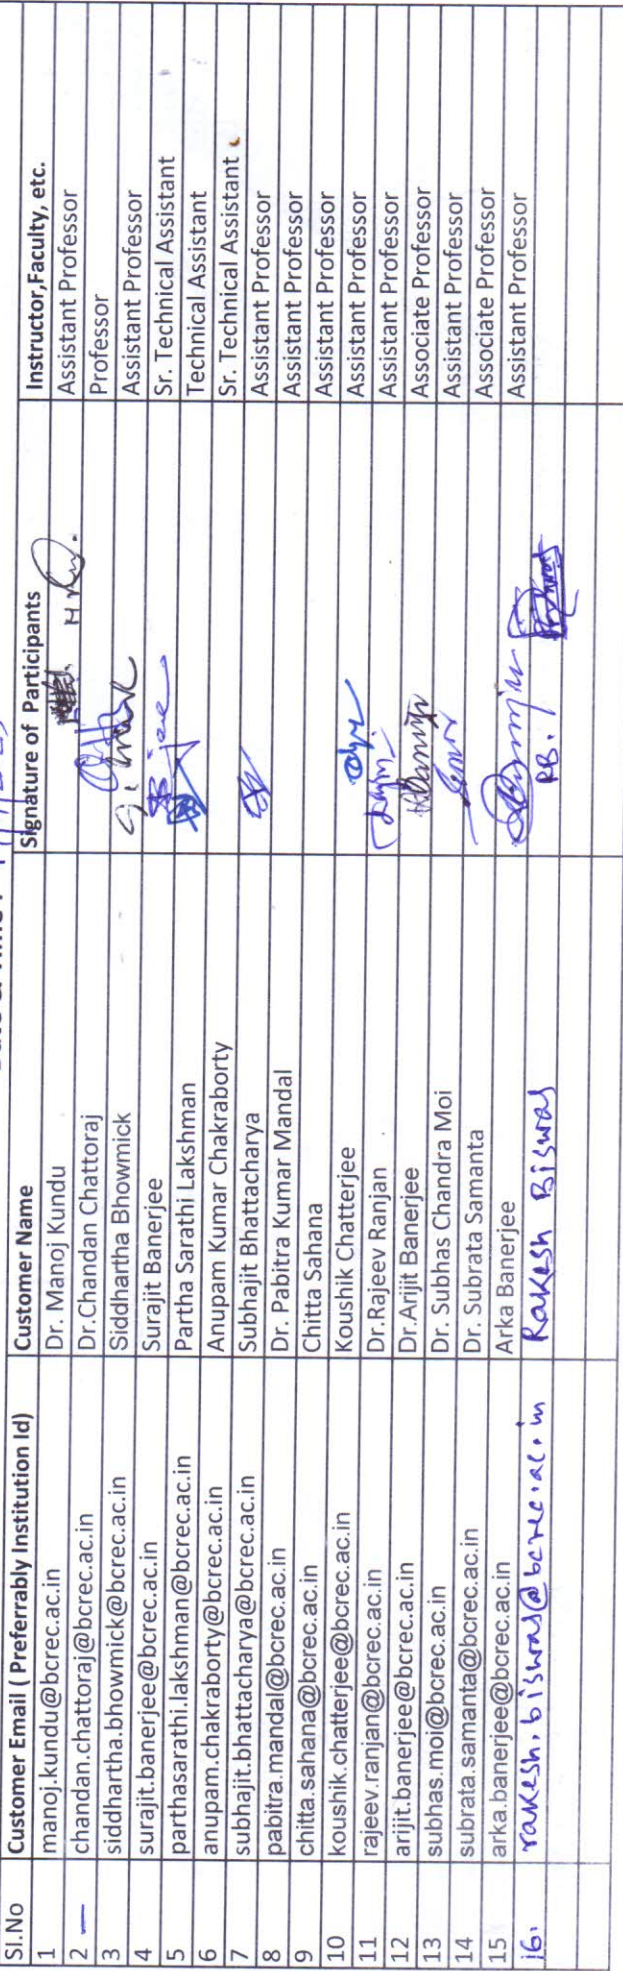 Sl.No Customer Email ( Preferrably Institution Id) Customer Name Signature of Participants Instructor,Faculty, etc.
1 manoj.kundu@bcrec.ac.in Dr. Manoj Kundu Assistant Professor
2 chandan.chattoraj@bcrec.ac.in Dr.Chandan Chattoraj Professor
3 siddhartha.bhowmick@bcrec.ac.in Siddhartha Bhowmick Assistant Professor
4 surajit.banerjee@bcrec.ac.in Surajit Banerjee Sr. Technical Assistant
5 parthasarathi.lakshman@bcrec.ac.in Partha Sarathi Lakshman Technical Assistant
6 anupam.chakraborty@bcrec.ac.in Anupam Kumar Chakraborty Sr. Technical Assistant
7 subhajit.bhattacharya@bcrec.ac.in Subhajit Bhattacharya Assistant Professor
8 pabitra.mandal@bcrec.ac.in Dr. Pabitra Kumar Mandal Assistant Professor
9 chitta.sahana@bcrec.ac.in Chitta Sahana Assistant Professor
10 koushik.chatterjee@bcrec.ac.in Koushik Chatterjee Assistant Professor
11 rajeev.ranjan@bcrec.ac.in Dr.Rajeev Ranjan Assistant Professor
12 arijit.banerjee@bcrec.ac.in Dr.Arijit Banerjee Associate Professor
13 subhas.moi@bcrec.ac.in Dr. Subhas Chandra Moi Assistant Professor
14 subrata.samanta@bcrec.ac.in Dr. Subrata Samanta Associate Professor
15 arka.banerjee@bcrec.ac.in Arka Banerjee Assistant Professor
16. rakesh.biswas@bcrec.ac.in Rakesh Biswas RB.